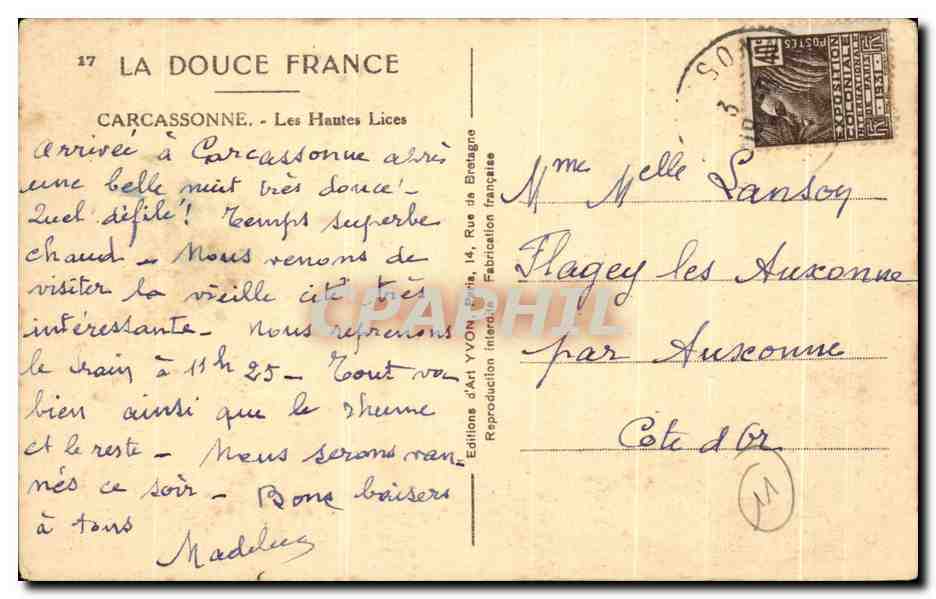 17 LA DOUCE FRANCE
CARCASSONNE. - Les Hautes Lices
Arrivée à Carcassonne après
une belle nuit très douce! -
Quel défilé! Temps superbe
chaud - Nous venons de
visiter la vieille cité très
intéressante - Nous reprenons
le train à 11h 25 - Tout va
bien ainsi que le rhume
et le reste - Nous serons van-
nés ce soir - Bons baisers
à tous
Editions d'Art YVON, Paris, 14, Rue de Bretagne
Reproduction interdite Fabrication française
40c
POSTES
EXPOSITION
COLONIALE
INTERNATIONALE
DE PARIS
1931
Mme Melle Lansoy
Flagey les Auxonne
par Auxonne
Côte d'Or
11
CPARPHIL